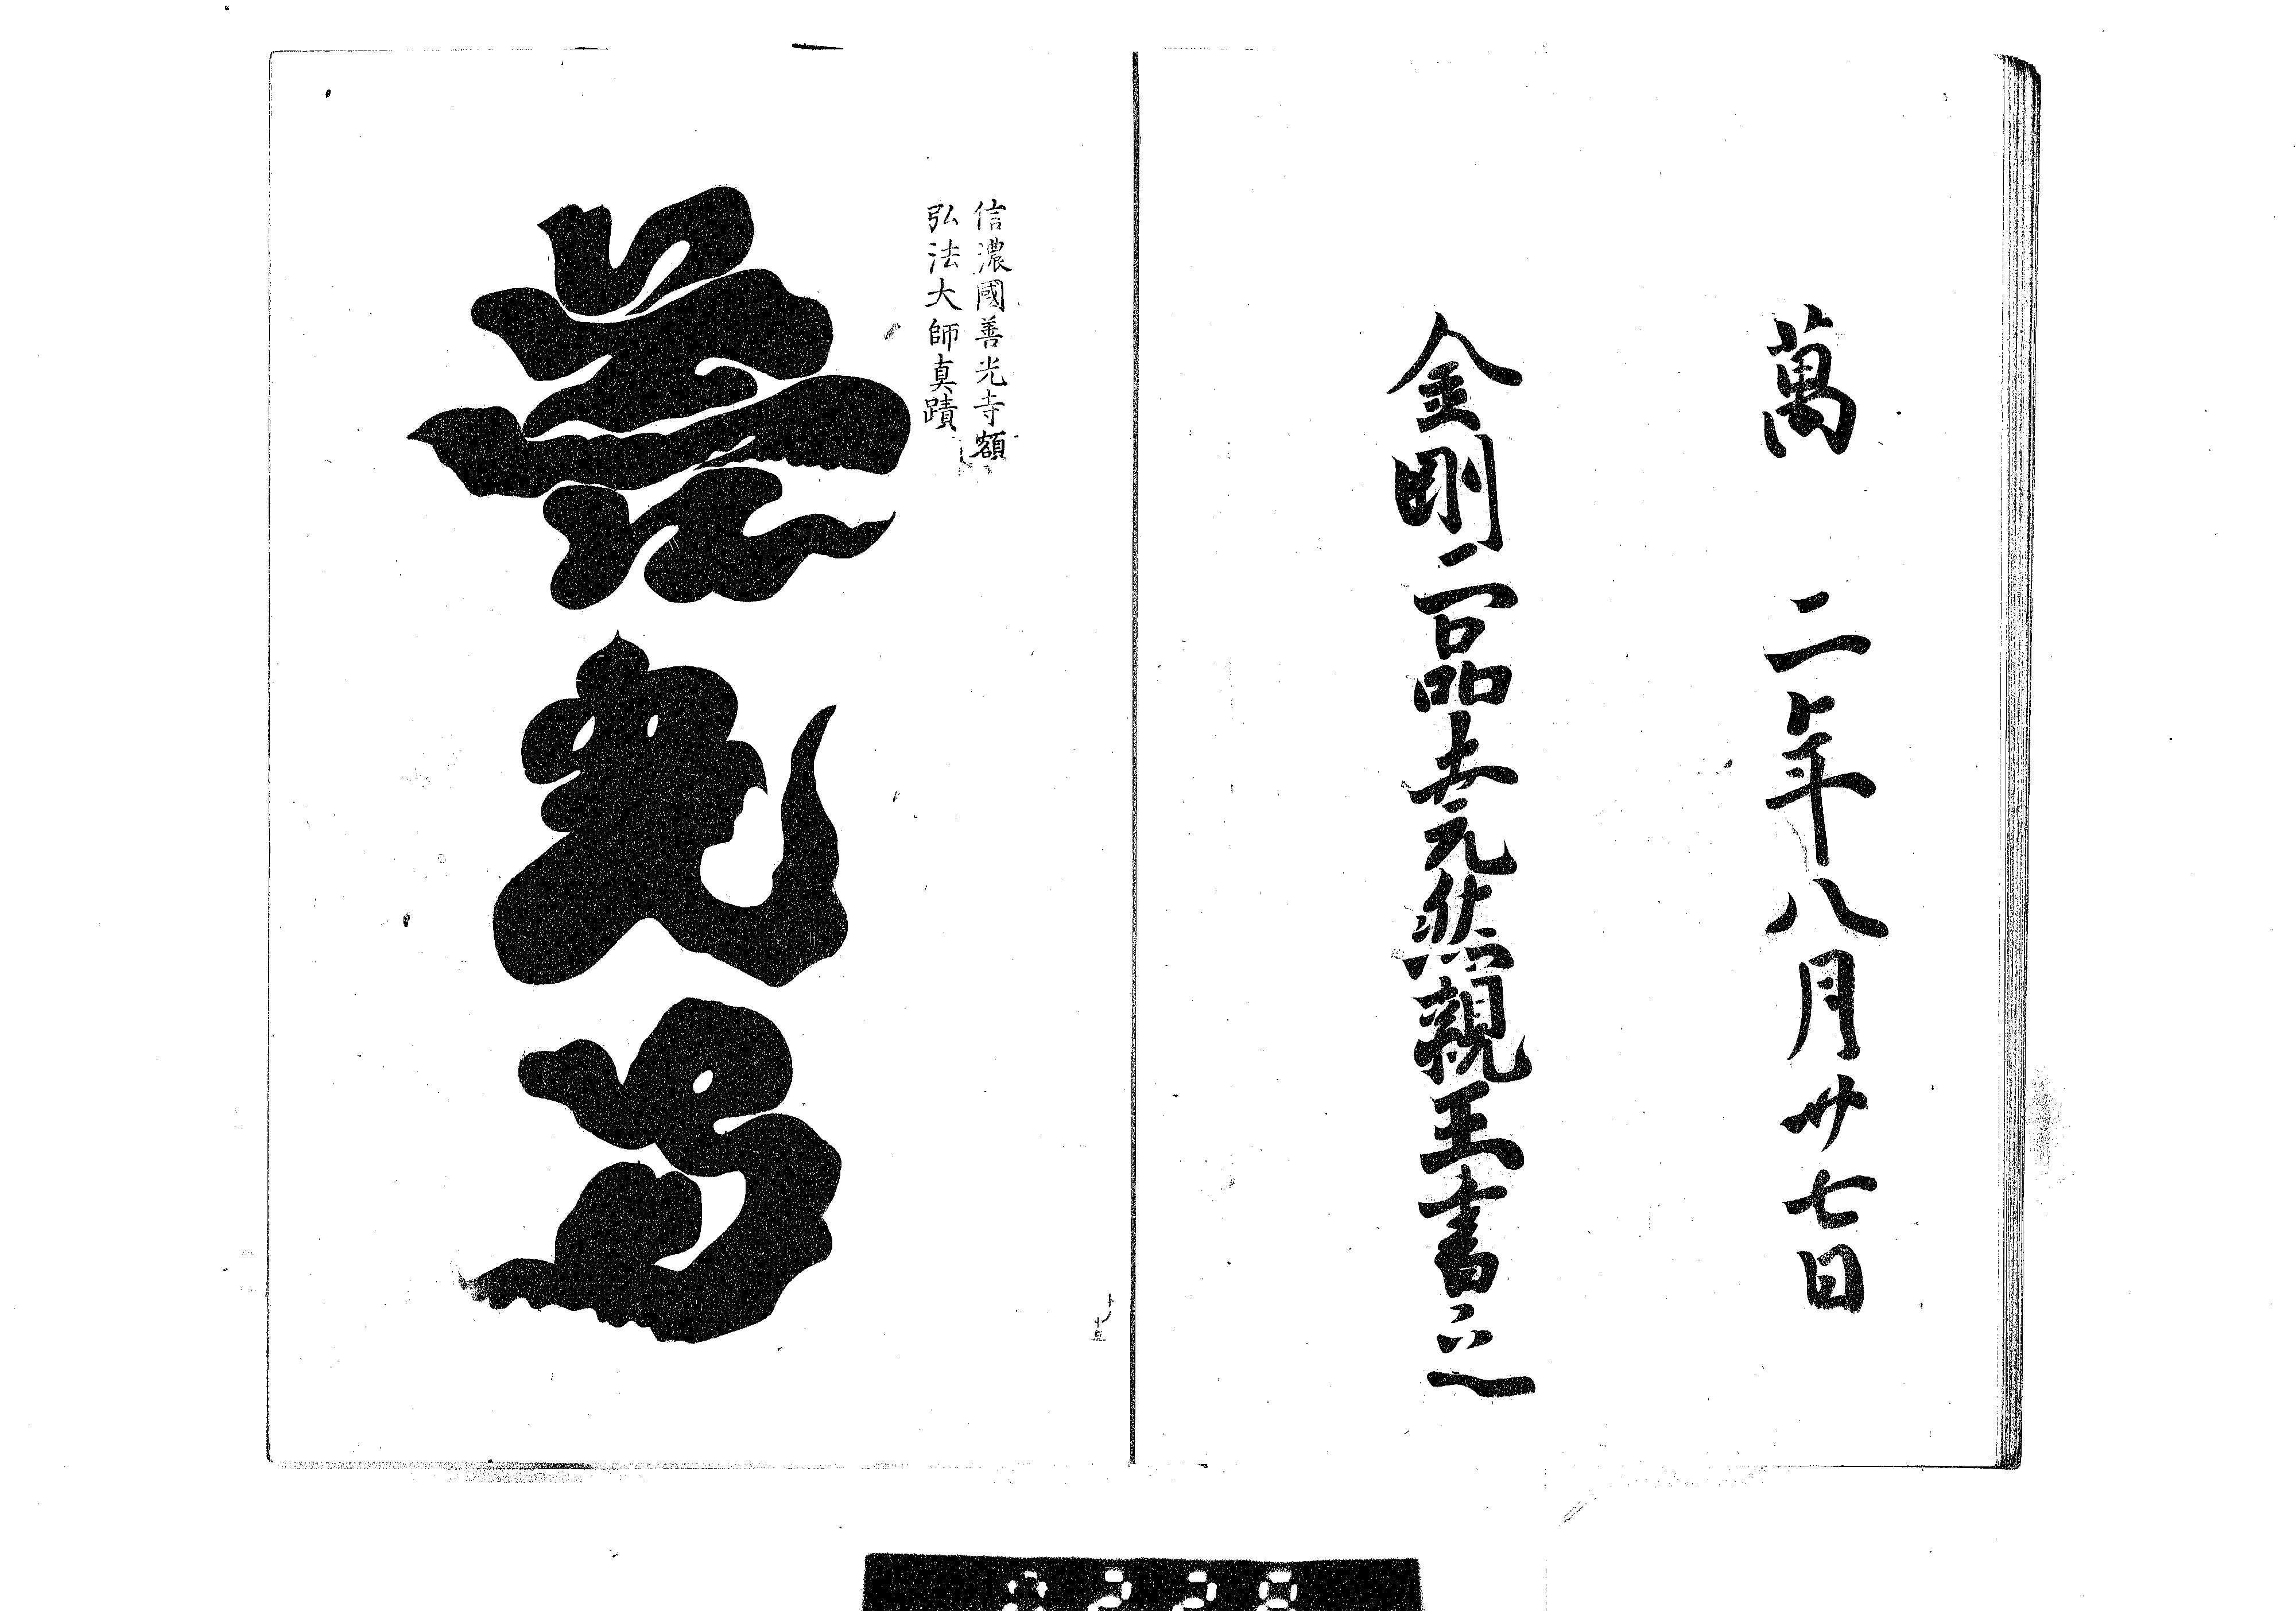 萬 二年八月廿七日
金剛二品堯然親王書之
信濃國善光寺額
弘法大師真蹟
善光寺